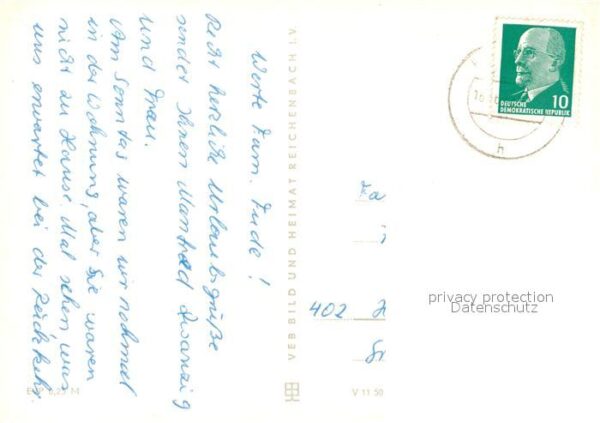 Werte Fam. Fude!
Recht herzliche Urlaubsgrüße
sendet Ihnen Manfred Zwanzig
und Frau.
Am Sonntag waren wir nochmal
in der Wohnung, aber Sie waren
nicht zu Hause. Mal sehen was
uns erwartet bei der Rückkehr.
VEB BILD UND HEIMAT REICHENBACH I.V
DEUTSCHE
DEMOKRATISCHE REPUBLIK
10
Fa
402 H
privacy protection
Datenschutz
V 11 50